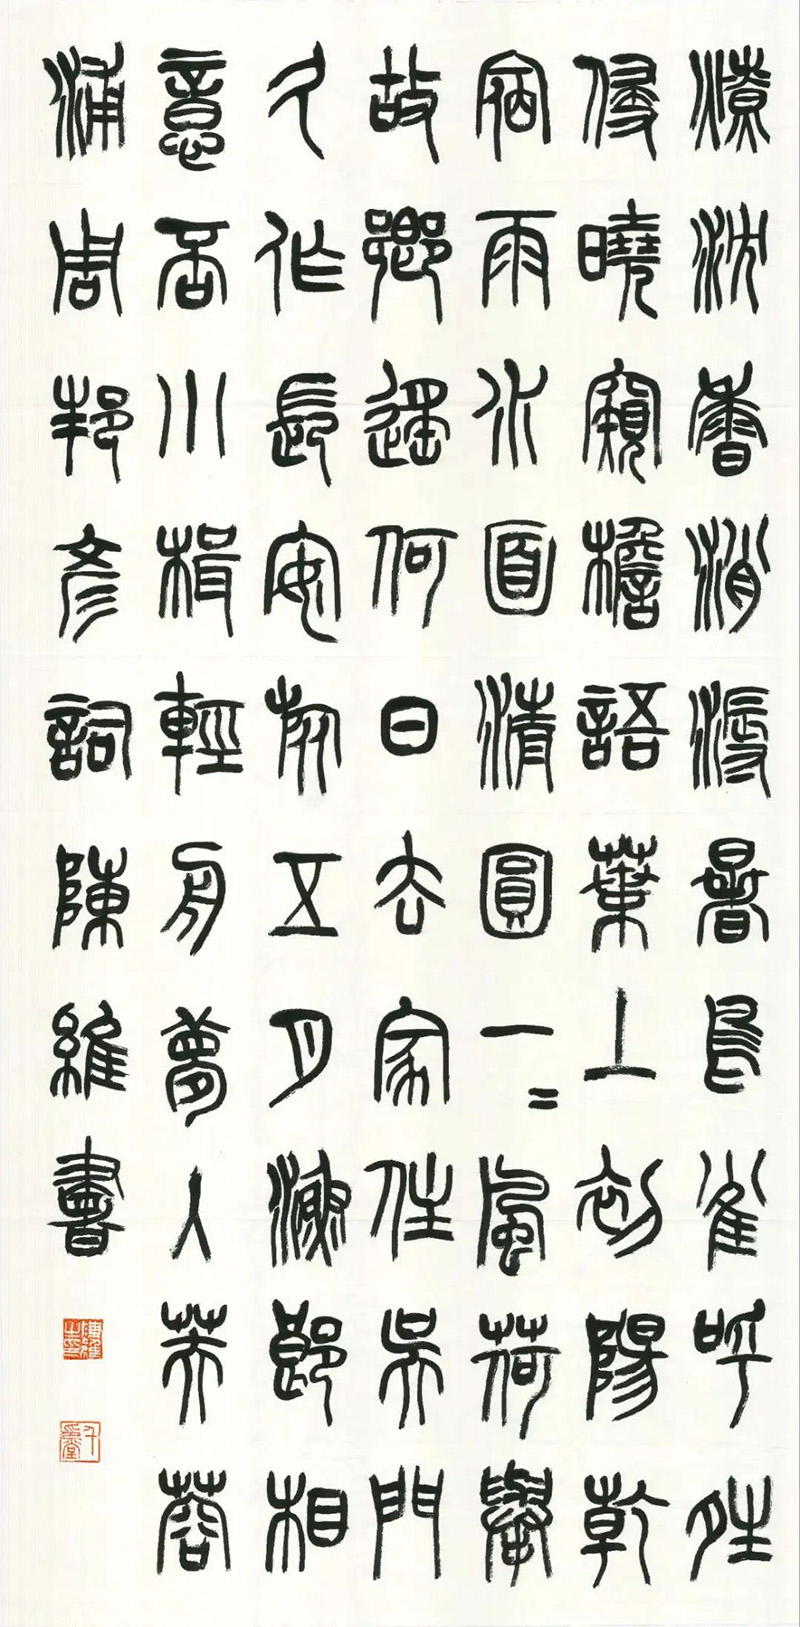 燎沈香消溽暑鳥雀呼夝
侵曉窺檐語葉上初陽乾
宿雨水面清圓一〻風荷舉
故鄉遙何日去家住吳門
久作長安旅五月漁郎相
意否小楫輕舟夢入芙蓉
浦周邦彥詞陳維書